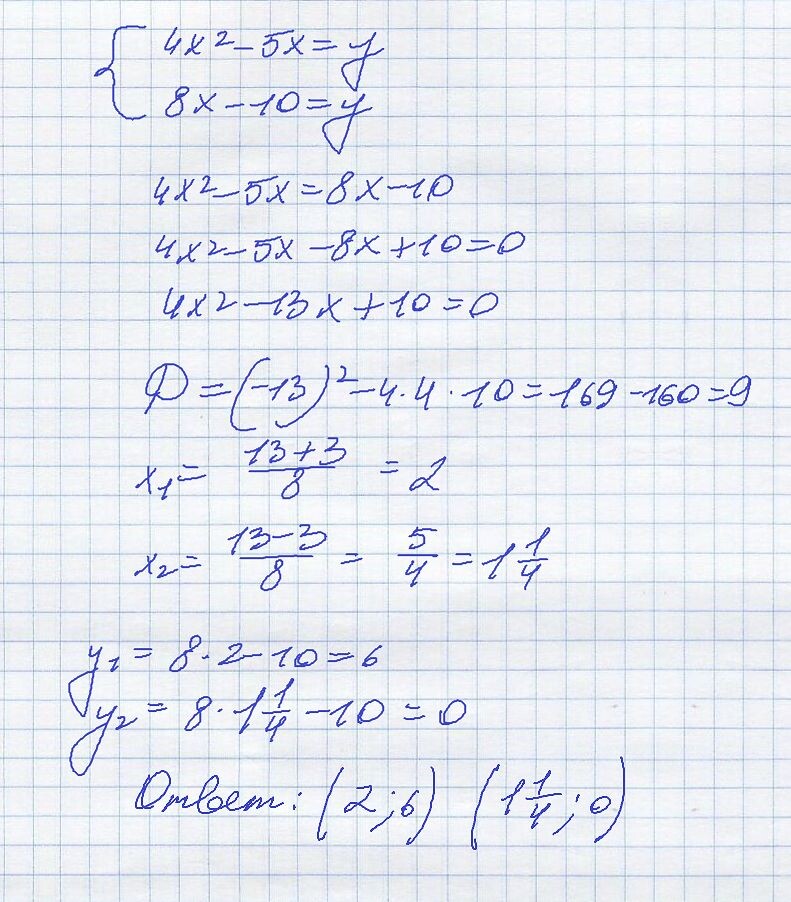 { 4x² - 5x = y
8x - 10 = y
4x² - 5x = 8x - 10
4x² - 5x - 8x + 10 = 0
4x² - 13x + 10 = 0
D = (-13)² - 4·4·10 = 169 - 160 = 9
x₁ = (13+3)/8 = 2
x₂ = (13-3)/8 = 5/4 = 1 1/4
y₁ = 8·2 - 10 = 6
y₂ = 8·1 1/4 - 10 = 0
Ответ: (2; 6) (1 1/4; 0)